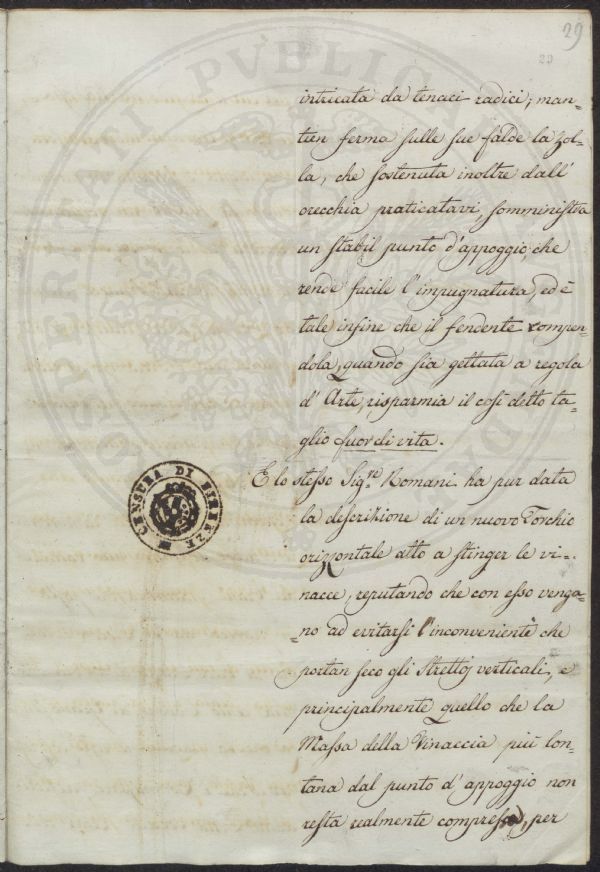 29
29
intricata da tenaci radici, man=
tien ferma sulle sue falde la zol=
la, che sostenuta inoltre dall'
orecchia praticatavi, somministra
un stabil punto d'appoggio, che
rende facile l'impugnatura, ed è
tale infine che il fendente rompen=
dola, quando sia gettata a regola
d'Arte, risparmia il così detto ta=
glio fuor di vita.
E lo stesso Sig.re Romani ha pur data
la descrizione di un nuovo Torchio
orizzontale atto a stinger le vi=
nacce, reputando che con esso venga=
=no ad evitarsi l'inconveniente che
portan seco gli Strettoj verticali, e
principalmente quello che la
Massa della Vinaccia più lon=
tana dal punto d'appoggio non
resta realmente compressa, per
CENSURA DI FIRENZE